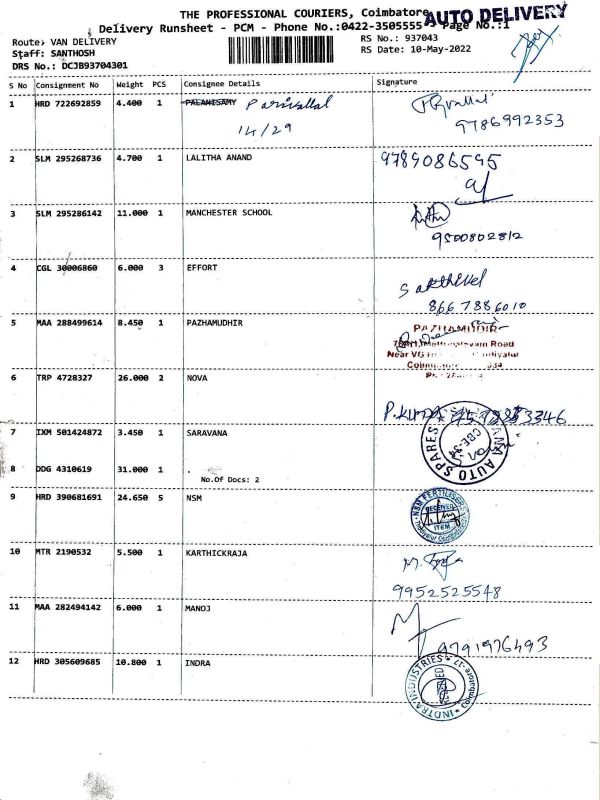 THE PROFESSIONAL COURIERS, Coimbatore
AUTO DELIVERY
Delivery Runsheet - PCM - Phone No.:0422-3505555 Page No.:1
Route: VAN DELIVERY
RS No.: 937043
Staff: SANTHOSH
RS Date: 10-May-2022
DRS No.: DCJB93704301
S No Consignment No Weight PCS Consignee Details Signature
1 HRD 722692859 4.400 1 PALANESAMY Parivallal
14/29
9786992353
2 SLM 295268736 4.700 1 LALITHA ANAND 9789086595
3 SLM 295286142 11.000 1 MANCHESTER SCHOOL
9500802812
4 CGL 30006860 6.000 3 EFFORT
Sakthivel
8667886010
5 MAA 288499614 8.450 1 PAZHAMUDHIR PAZHAMUDIR
Road
Near VG
6 TRP 4728327 26.000 2 NOVA
7 IXM 501424872 3.450 1 SARAVANA
AUTO SPARES
CBE-34
8 DDG 4310619 31.000 1
No.Of Docs: 2
9 HRD 390681691 24.650 5 NSM NSM FERTILISERS
RECEIVED
ITEM
10 MTR 2190532 5.500 1 KARTHICKRAJA
9952525548
11 MAA 282494142 6.000 1 MANOJ
9791976493
12 HRD 305609685 10.800 1 INDRA
INDTRA INDUSTRIES * Coimbatore-17 *